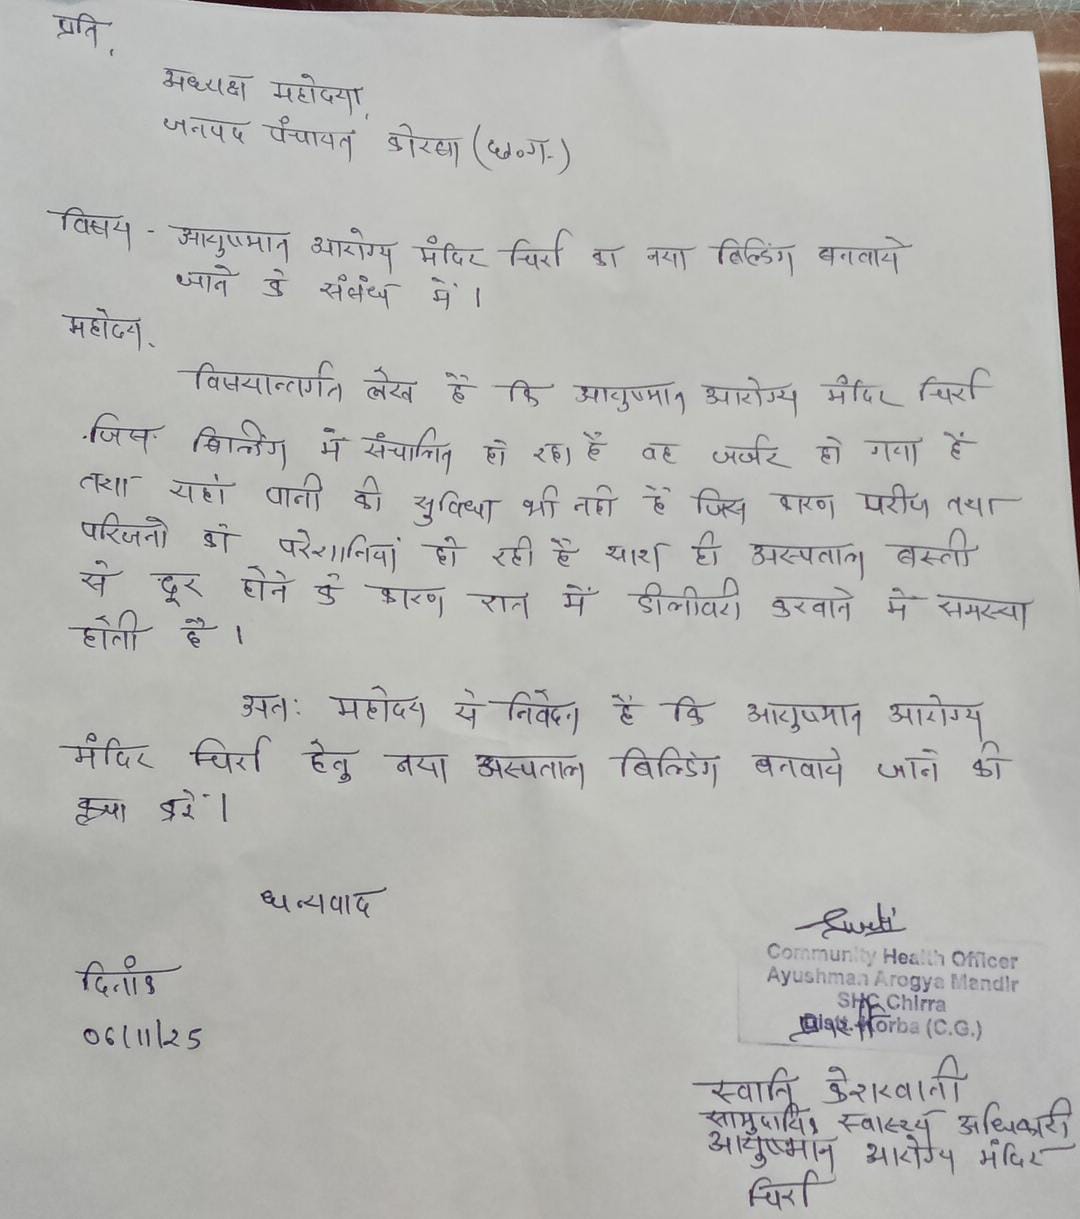 प्रति,
अध्यक्ष महोदया,
जनपद पंचायत कोरबा (छ०ग.)
विषय - आयुष्मान आरोग्य मंदिर चिर्रा का नया बिल्डिंग बनवाये
जाने के संबंध में।
महोदय,
विषयान्तर्गत लेख है कि आयुष्मान आरोग्य मंदिर चिर्रा
जिस बिल्डिंग में संचालित हो रहा है वह जर्जर हो गया है
तथा यहां पानी की सुविधा भी नही है जिस कारण मरीज तथा
परिजनों को परेशानियां हो रही है साथ ही अस्पताल बस्ती
से दूर होने के कारण रात में डीलीवरी करवाने में समस्या
होती है।
अतः महोदय से निवेदन है कि आयुष्मान आरोग्य
मंदिर चिर्रा हेतु नया अस्पताल बिल्डिंग बनवाये जाने की
कृपा करें।
धन्यवाद
दिनांक
06/11/25
Swati
Community Health Officer
Ayushman Arogya Mandir
SHC Chirra
Distt. Korba (C.G.)
स्वाति केशरवानी
सामुदायिक स्वास्थ्य अधिकारी
आयुष्मान आरोग्य मंदिर
चिर्रा